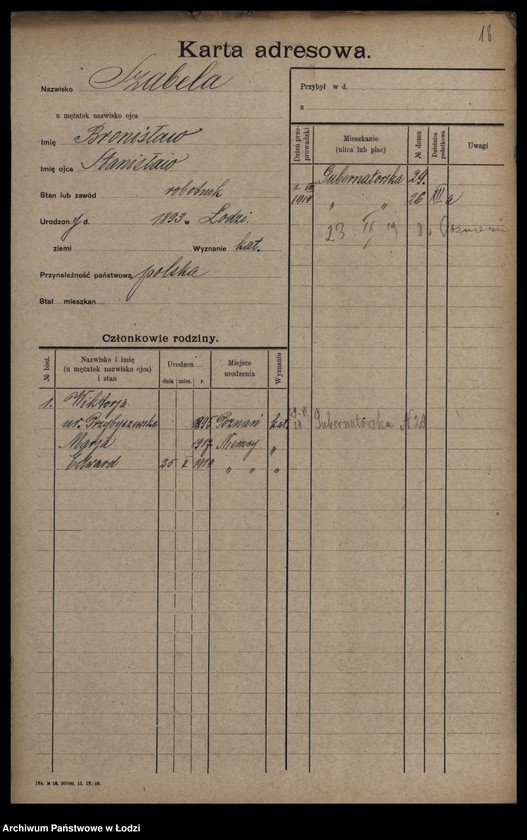 18
Karta adresowa.
Nazwisko Szabela
u mężatek nazwisko ojca
Imię Bronisław
Imię ojca Stanisław
Stan lub zawód robotnik
Urodzony d. 1893 w Łodzi
ziemi Wyznanie kat.
Przynależność państwową polska
Stał mieszkan
Przybył w d.
z
Dzień przeprowadzki Mieszkanie (ulica lub plac) № domu Dzielnica podatkowa Uwagi
Gubernatorska 29.
1919 „ „ 26 XII a
23 IX 19 Poznani
Członkowie rodziny.
№ bież. Nazwisko i imię (u mężatek nazwisko ojca) i stan Urodzon Miejsce urodzenia Wyznanie
data mies. r.
1. Wiktorja
ur. Przybyszewska 1895 Poznań kat. 19 Gubernatorska № 29
Marja 1917 Niemcy „
Edward 25 X 1918 „ „ „
Archiwum Państwowe w Łodzi